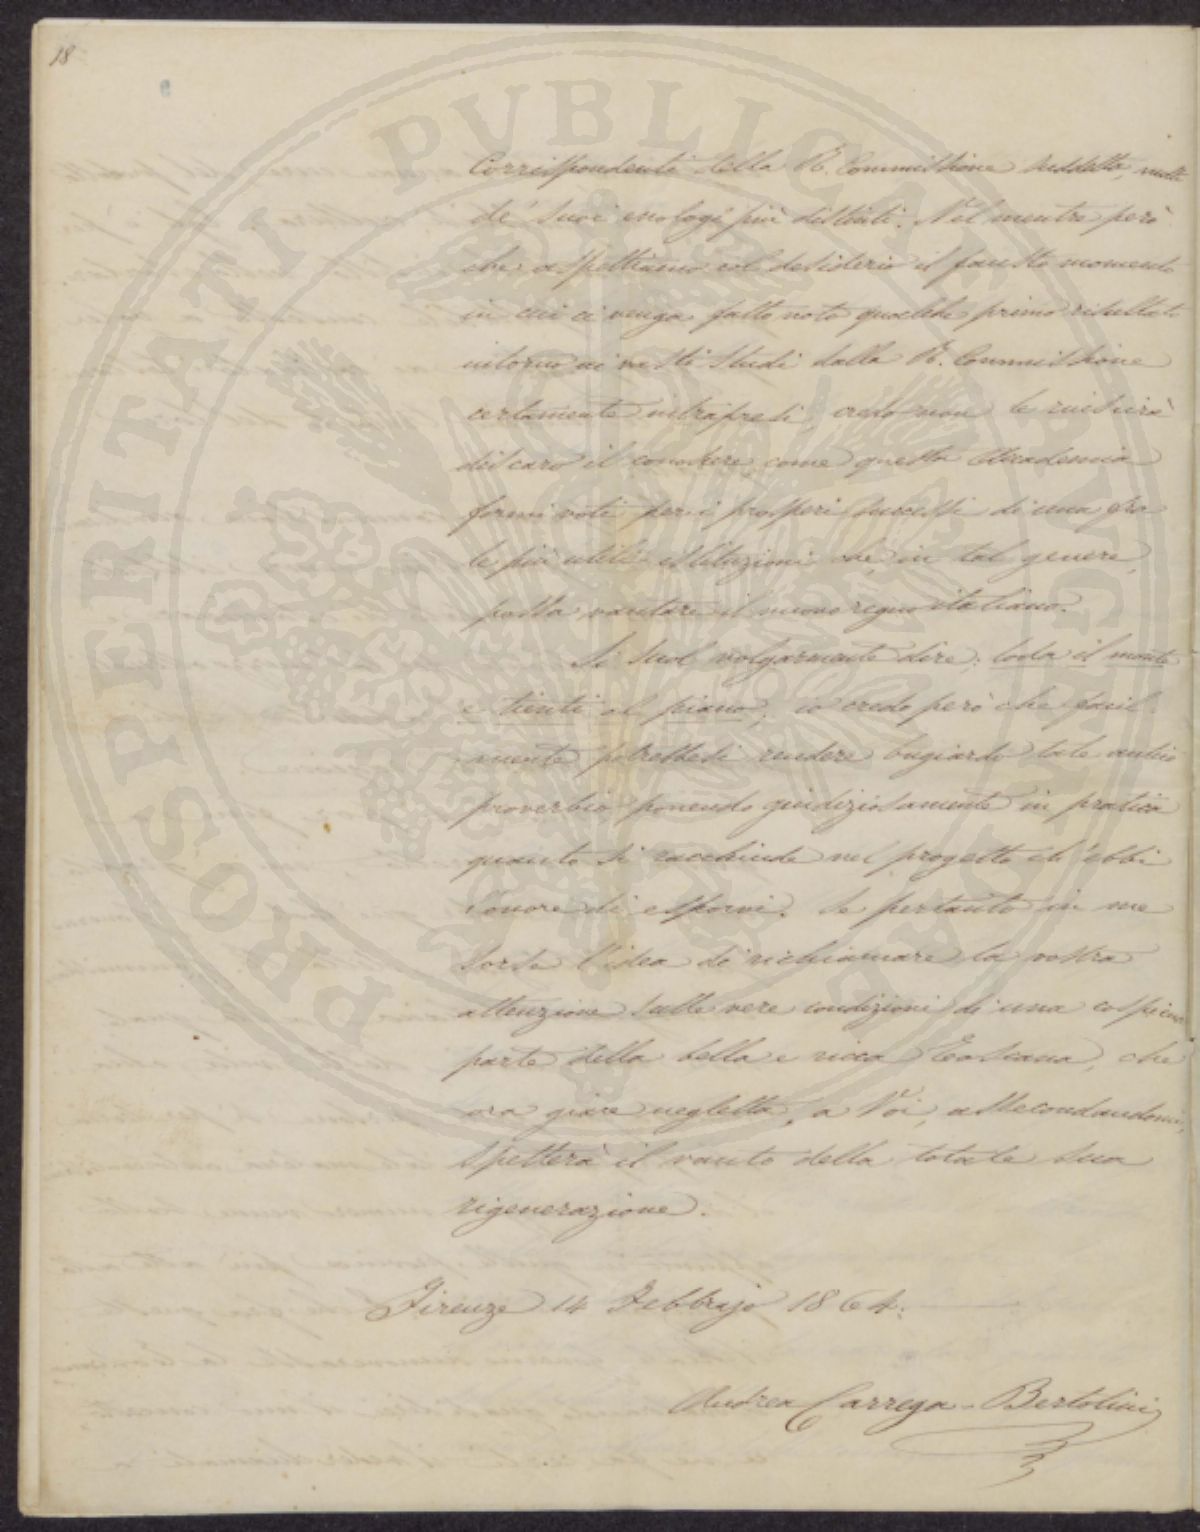 18
PROSPERITATI PUBLICAE AUGENDAE
Corrispondenti della R. Commissione suddetta, molti
de' suoi enologi più distinti. Nel mentre però
che aspettiamo col desiderio il fausto momento
in cui ci venga fatto noto qualche primo risultato
intorno ai vasti studi dalla R. Commissione
certamente intrapresi, credo non le riescirà
discaro il conoscere come questa Accademia
formi voti per i prosperi successi di una fra
le più utili istituzioni che, in tal genere,
possa vantare il nuovo regno italiano.
Si suol volgarmente dire; loda il monte
e tienti al piano; io credo però che facil
mente potrebbesi rendere bugiardo tale antico
proverbio ponendo giudiziosamente in pratica
quanto si racchiude nel progetto ch'ebbi
l'onore di esporvi. Se pertanto in me
sorse l'idea di richiamare la vostra
attenzione sulle vere condizioni di una cospicua
parte della bella e ricca Toscana, che
ora giace negletta, a Voi, assecondandomi,
spetterà il vanto della totale sua
rigenerazione.
Firenze 14 Febbrajo 1864.
Andrea Carrega-Bertolini